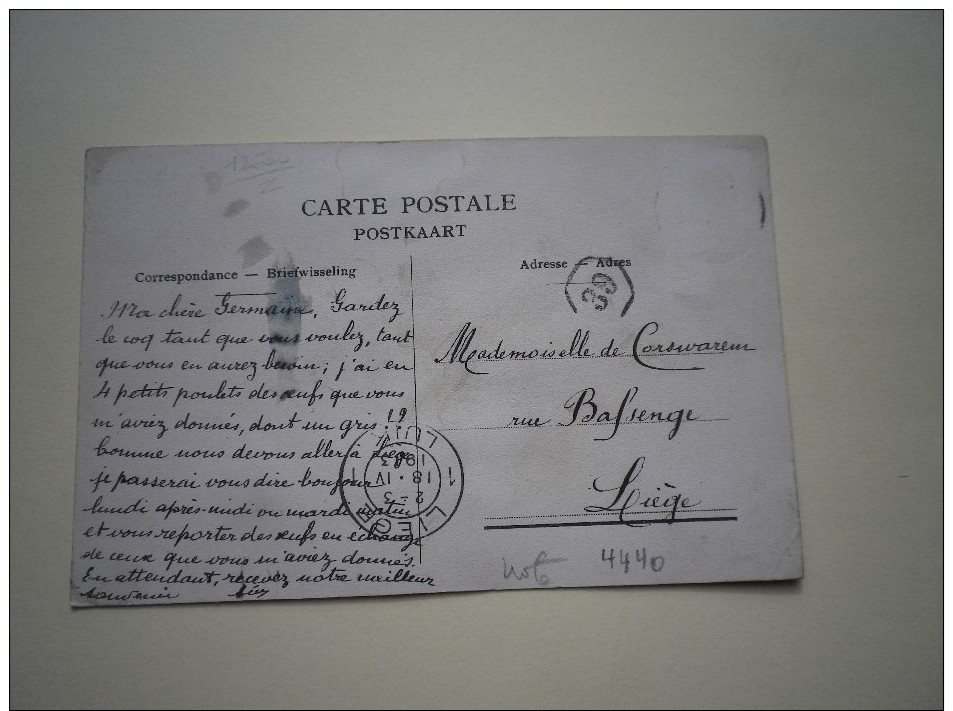 CARTE POSTALE
POSTKAART
Correspondance — Briefwisseling
Ma chère Germaine, Gardez
le coq tant que vous voulez, tant
que vous en aurez besoin; j'ai eu
4 petits poulets des œufs que vous
m'aviez donnés, dont un gris!!
Comme nous devons aller à Liège
je passerai vous dire bonjour
lundi après-midi ou mardi matin
et vous reporter des œufs en échange
de ceux que vous m'aviez donnés.
En attendant, recevez notre meilleur
souvenir
Adresse — Adres
39
Mademoiselle de Corswarem
rue Bassenge
Liège
1 LUIK 1
1913
18 · IV
2 - 3
4440